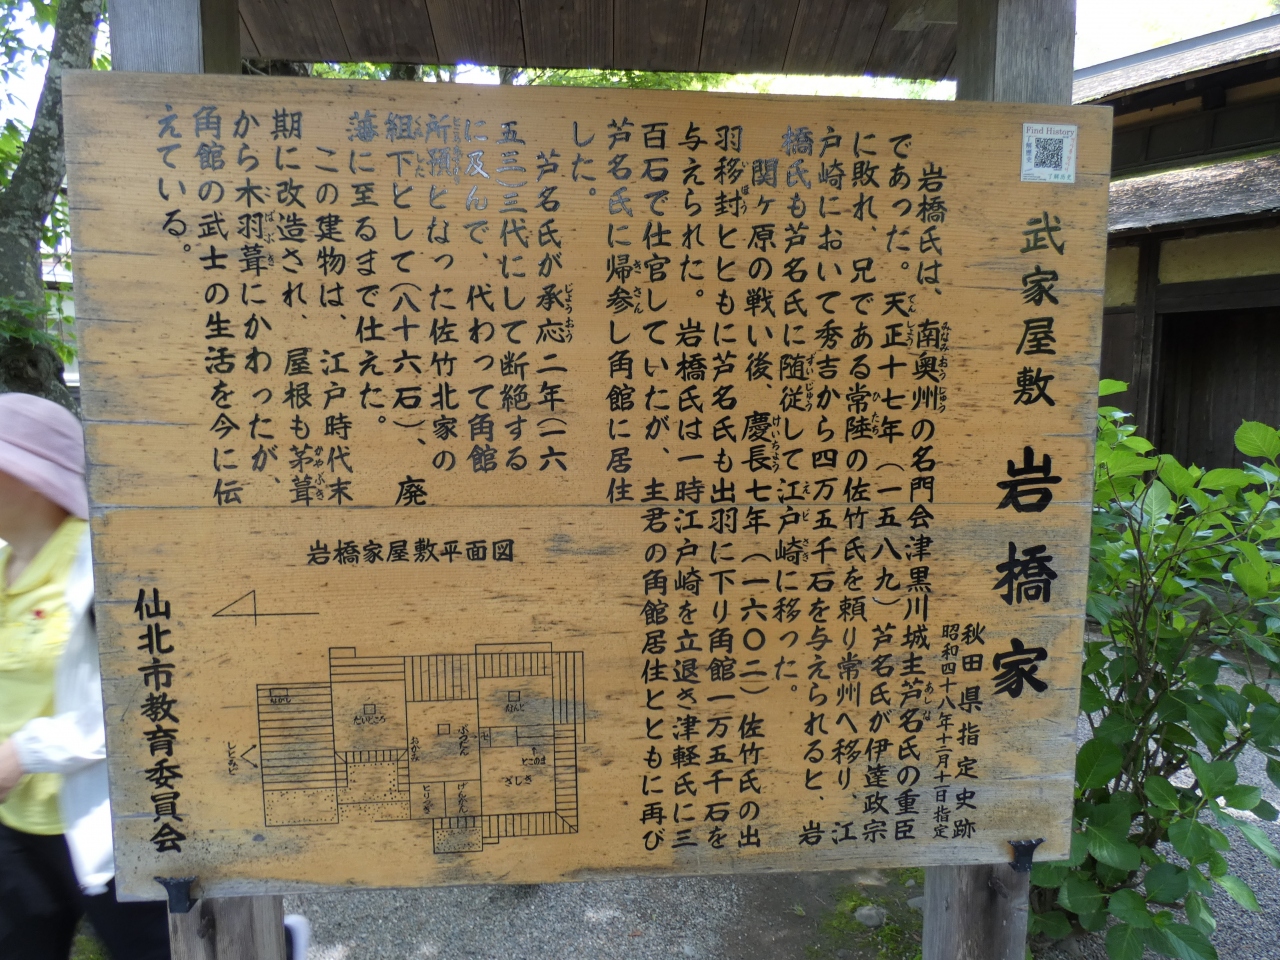 Find History
武家屋敷 岩橋家
秋田県指定史跡
昭和四十八年十二月十一日指定
岩橋氏は、南奥州の名門会津黒川城主芦名氏の重臣
みなみおうしゅう
あしな
であった。天正十七年（一五八九）芦名氏が伊達政宗
てんしょう
に敗れ、兄である常陸の佐竹氏を頼り常州へ移り、江
ひたち
戸崎において秀吉から四万五千石を与えられると、岩
橋氏も芦名氏に随従して江戸崎に移った。
ずいじゅう
えどさき
関ヶ原の戦い後、慶長七年（一六〇二）佐竹氏の出
けいちょう
羽移封とともに芦名氏も出羽に下り角館一万五千石を
いほう
与えられた。岩橋氏は一時江戸崎を立退き津軽氏に三
百石で仕官していたが、主君の角館居住とともに再び
芦名氏に帰参し角館に居住
きさん
した。
芦名氏が承応二年（一六
じょうおう
五三）三代にして断絶する
に及んで、代わって角館
所預となった佐竹北家の
組下として（八十六石）、廃
藩に至るまで仕えた。
この建物は、江戸時代末
期に改造され、屋根も茅葺
かやぶき
から木羽葺にかわったが、
ばぶき
角館の武士の生活を今に伝
えている。
岩橋家屋敷平面図
だいどころ
おかみ
ぶつだん
なんど
とこのま
ざしき
げんかん
仙北市教育委員会